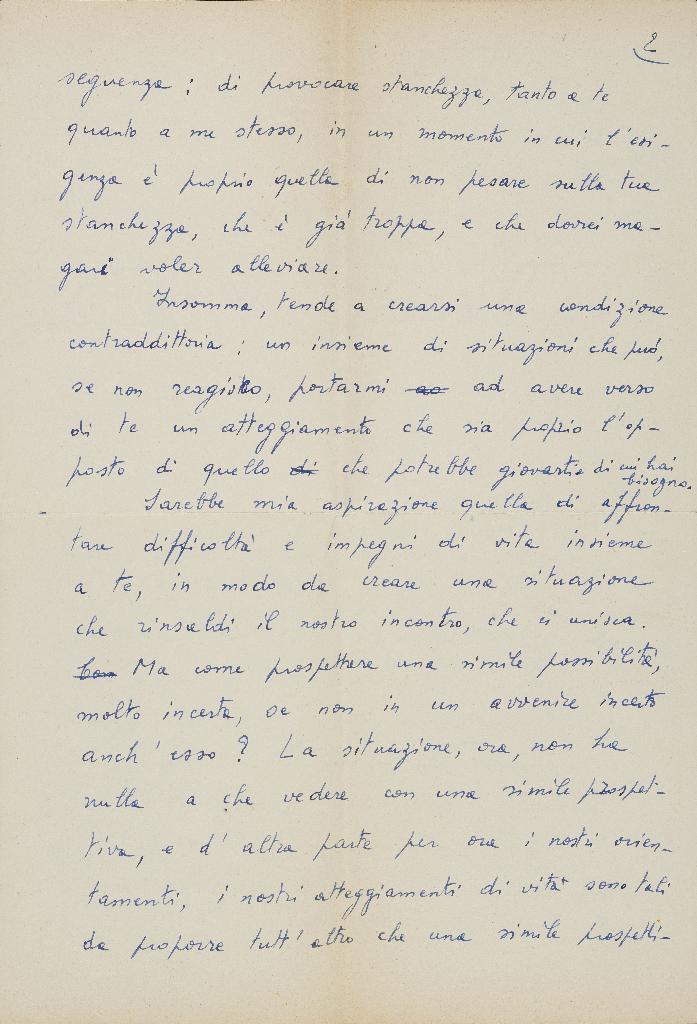 2
seguenza: di provocare stanchezza, tanto a te
quanto a me stesso, in un momento in cui l'esi-
genza è proprio quella di non pesare sulla tua
stanchezza, che è già troppa, e che dovrei ma-
gari voler alleviare.
Insomma, tende a crearsi una condizione
contraddittoria: un insieme di situazioni che può,
se non reagisco, portarmi ao ad avere verso
di te un atteggiamento che sia proprio l'op-
posto di quello di che potrebbe giovarti e di cui hai
bisogno.
Sarebbe mia aspirazione quella di affron-
tare difficoltà e impegni di vita insieme
a te, in modo da creare una situazione
che rinsaldi il nostro incontro, che ci unisca.
Com Ma come prospettare una simile possibilità,
molto incerta, se non in un avvenire incerto
anch'esso? La situazione, ora, non ha
nulla a che vedere con una simile prospet-
tiva, e d'altra parte per ora i nostri orien-
tamenti, i nostri atteggiamenti di vita sono tali
da proporre tutt'altro che una simile prospetti-